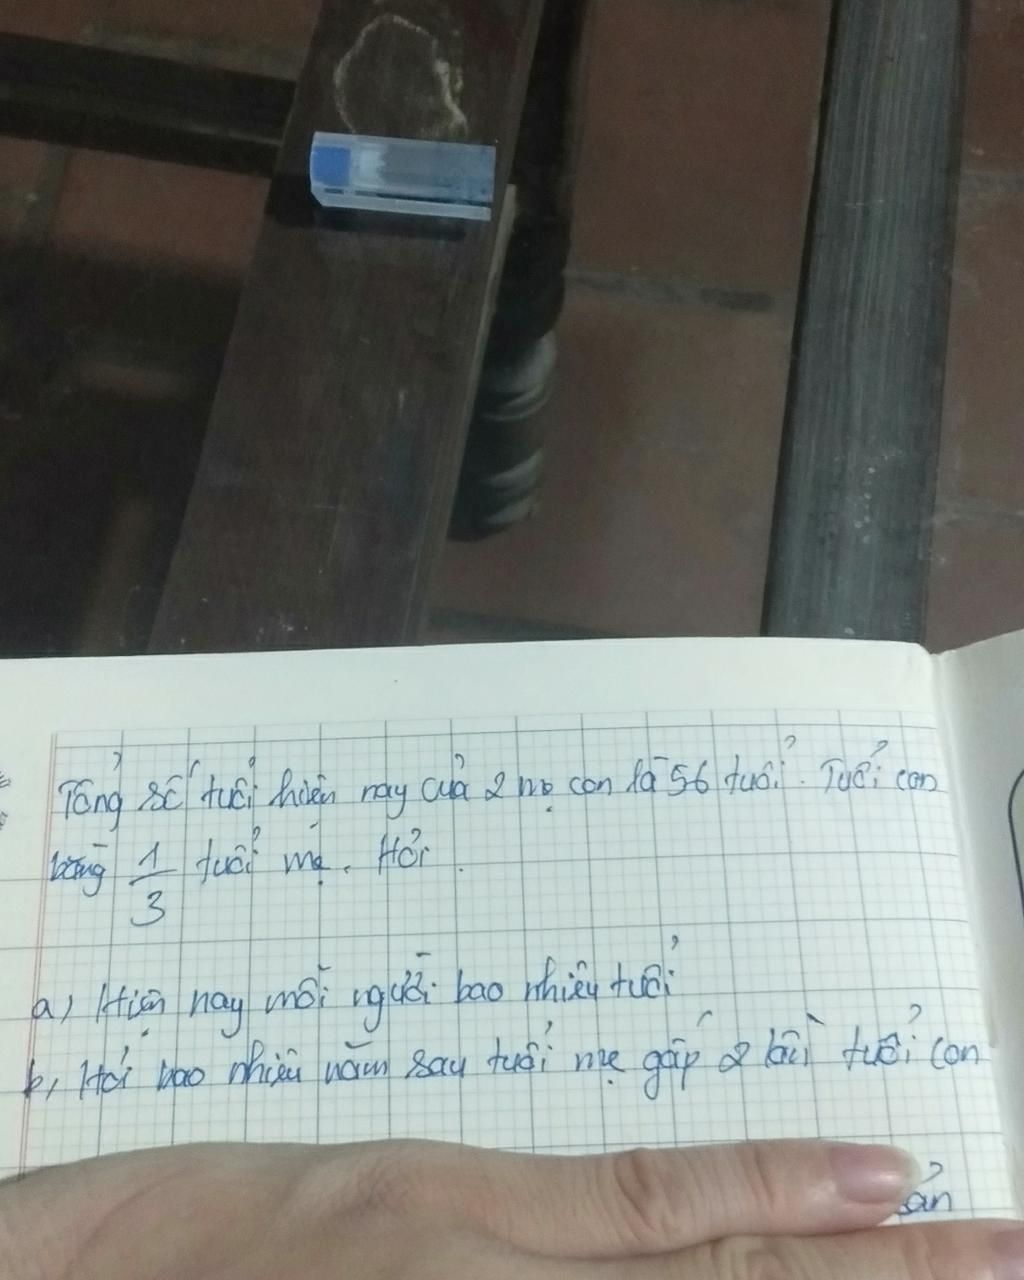 Tổng số tuổi hiện nay của 2 mẹ con là 56 tuổi. Tuổi con
bằng 1/3 tuổi mẹ. Hỏi
a) Hiện nay mỗi người bao nhiêu tuổi
b, Hỏi bao nhiêu năm sau tuổi mẹ gấp 2 lần tuổi con